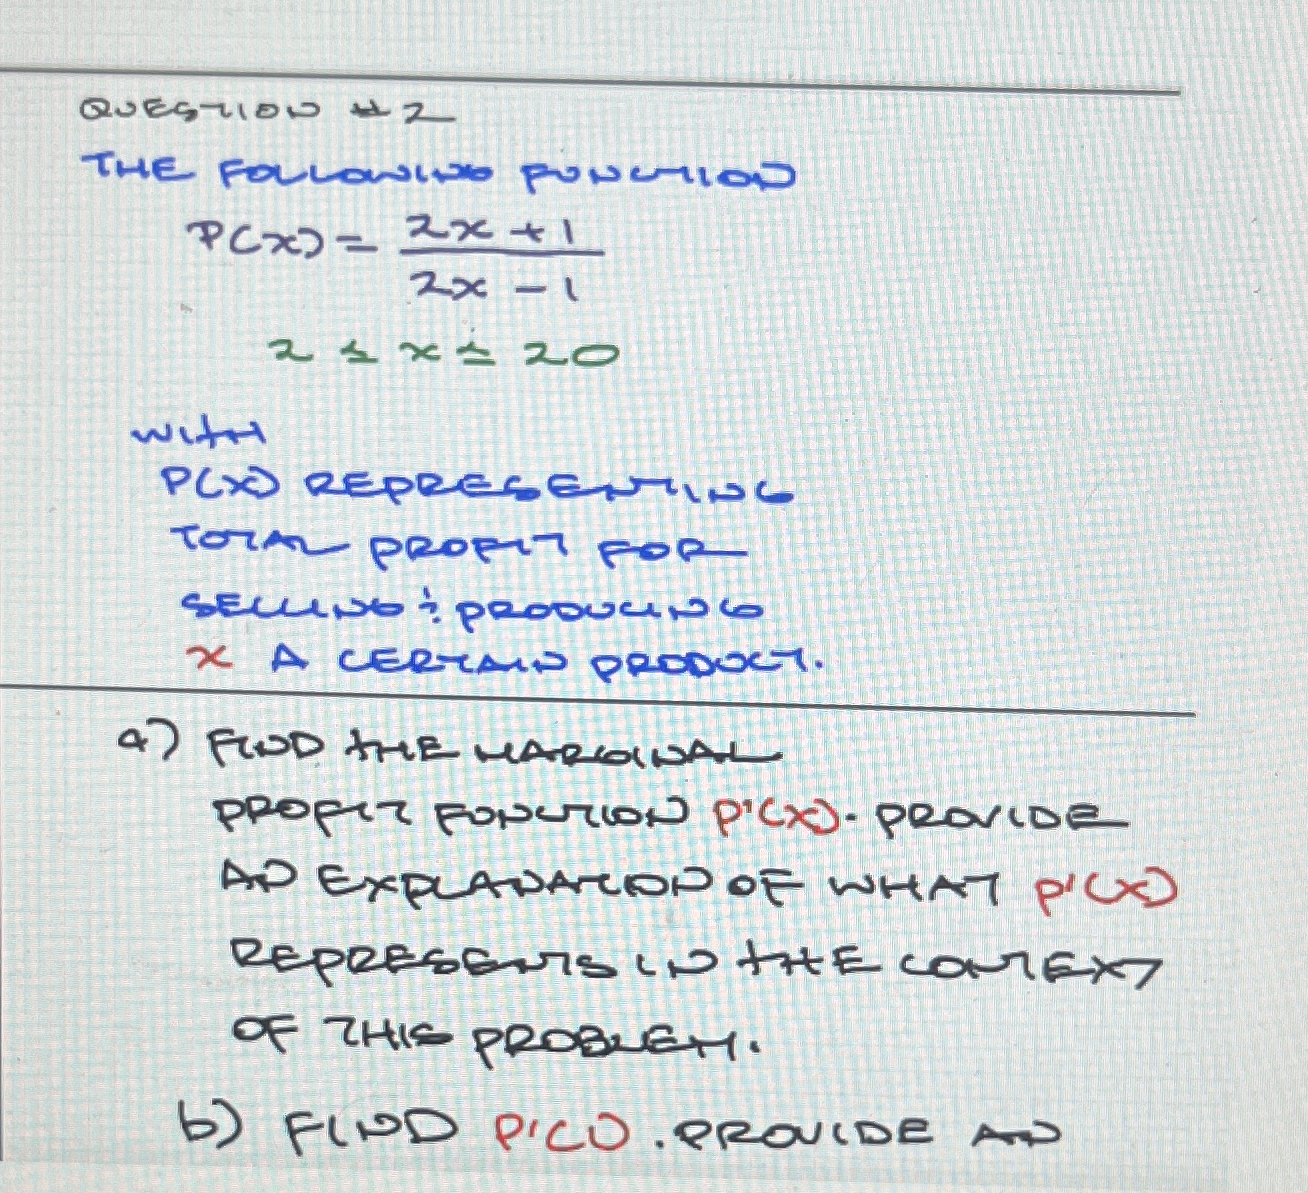 QUESTION #2
THE FOLLOWING FUNCTION
P(x) = 2x + 1
2x - 1
2 ≤ x ≤ 20
WITH
P(x) REPRESENTING
TOTAL PROFIT FOR
SELLING & PRODUCING
x A CERTAIN PRODUCT.
a) FIND THE MARGINAL
PROFIT FUNCTION P'(x). PROVIDE
AN EXPLANATION OF WHAT P'(x)
REPRESENTS IN THE CONTEXT
OF THIS PROBLEM.
b) FIND . PROVIDE AN